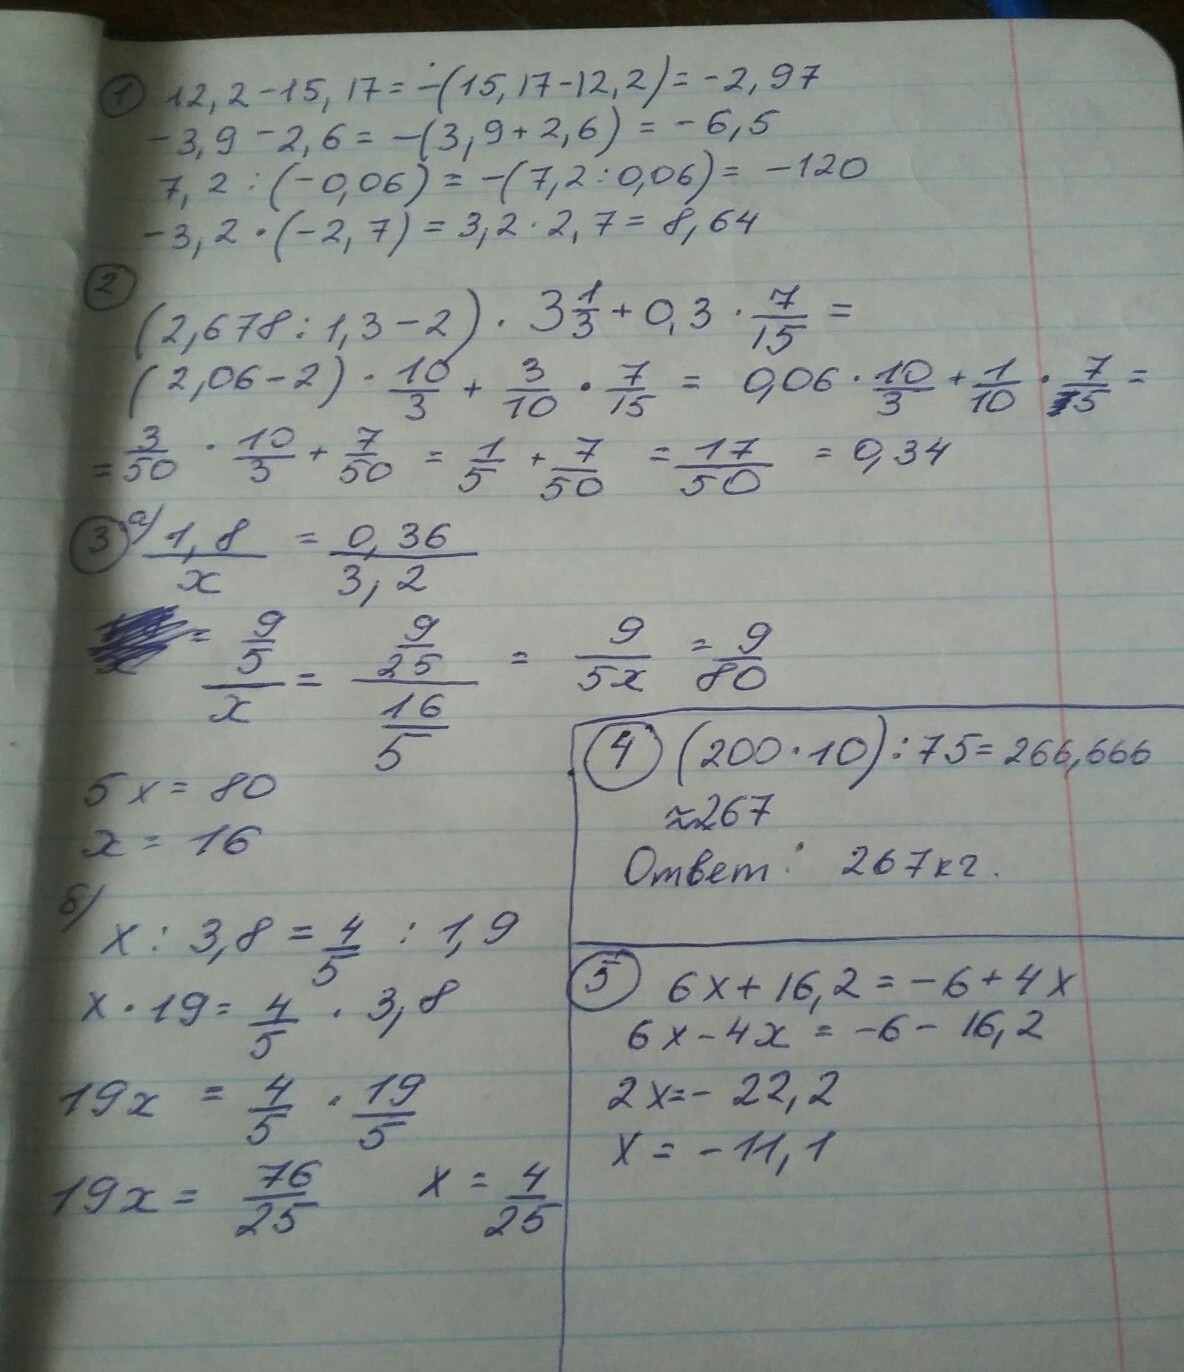 1) 12,2-15,17=-(15,17-12,2)=-2,97
-3,9-2,6=-(3,9+2,6)=-6,5
7,2:(-0,06)=-(7,2:0,06)=-120
-3,2·(-2,7)=3,2·2,7=8,64
2)
(2,678:1,3-2)·3 1/3+0,3·7/15=
(2,06-2)·10/3+3/10·7/15=0,06·10/3+1/10·7/5=
=3/50·10/3+7/50=1/5+7/50=17/50=0,34
3) а) 1,8/x=0,36/3,2
= (9/5)/x=(9/25)/(16/5)=9/5x=9/80
5x=80
x=16
б)
x:3,8=4/5:1,9
x·19=4/5·3,8
19x=4/5·19/5
19x=76/25 x=4/25
4) (200·10):75=266,666
≈267
Ответ: 267кг.
5) 6x+16,2=-6+4x
6x-4x=-6-16,2
2x=-22,2
x=-11,1